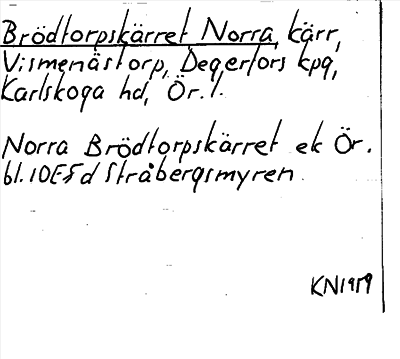 Brödtorpskärret Norra, kärr,
Vismenästorp, Degerfors kpg,
Karlskoga hd, Ör. l.
Norra Brödtorpskärret ek Ör.
bl. 10E5d Stråbergsmyren
KN1959